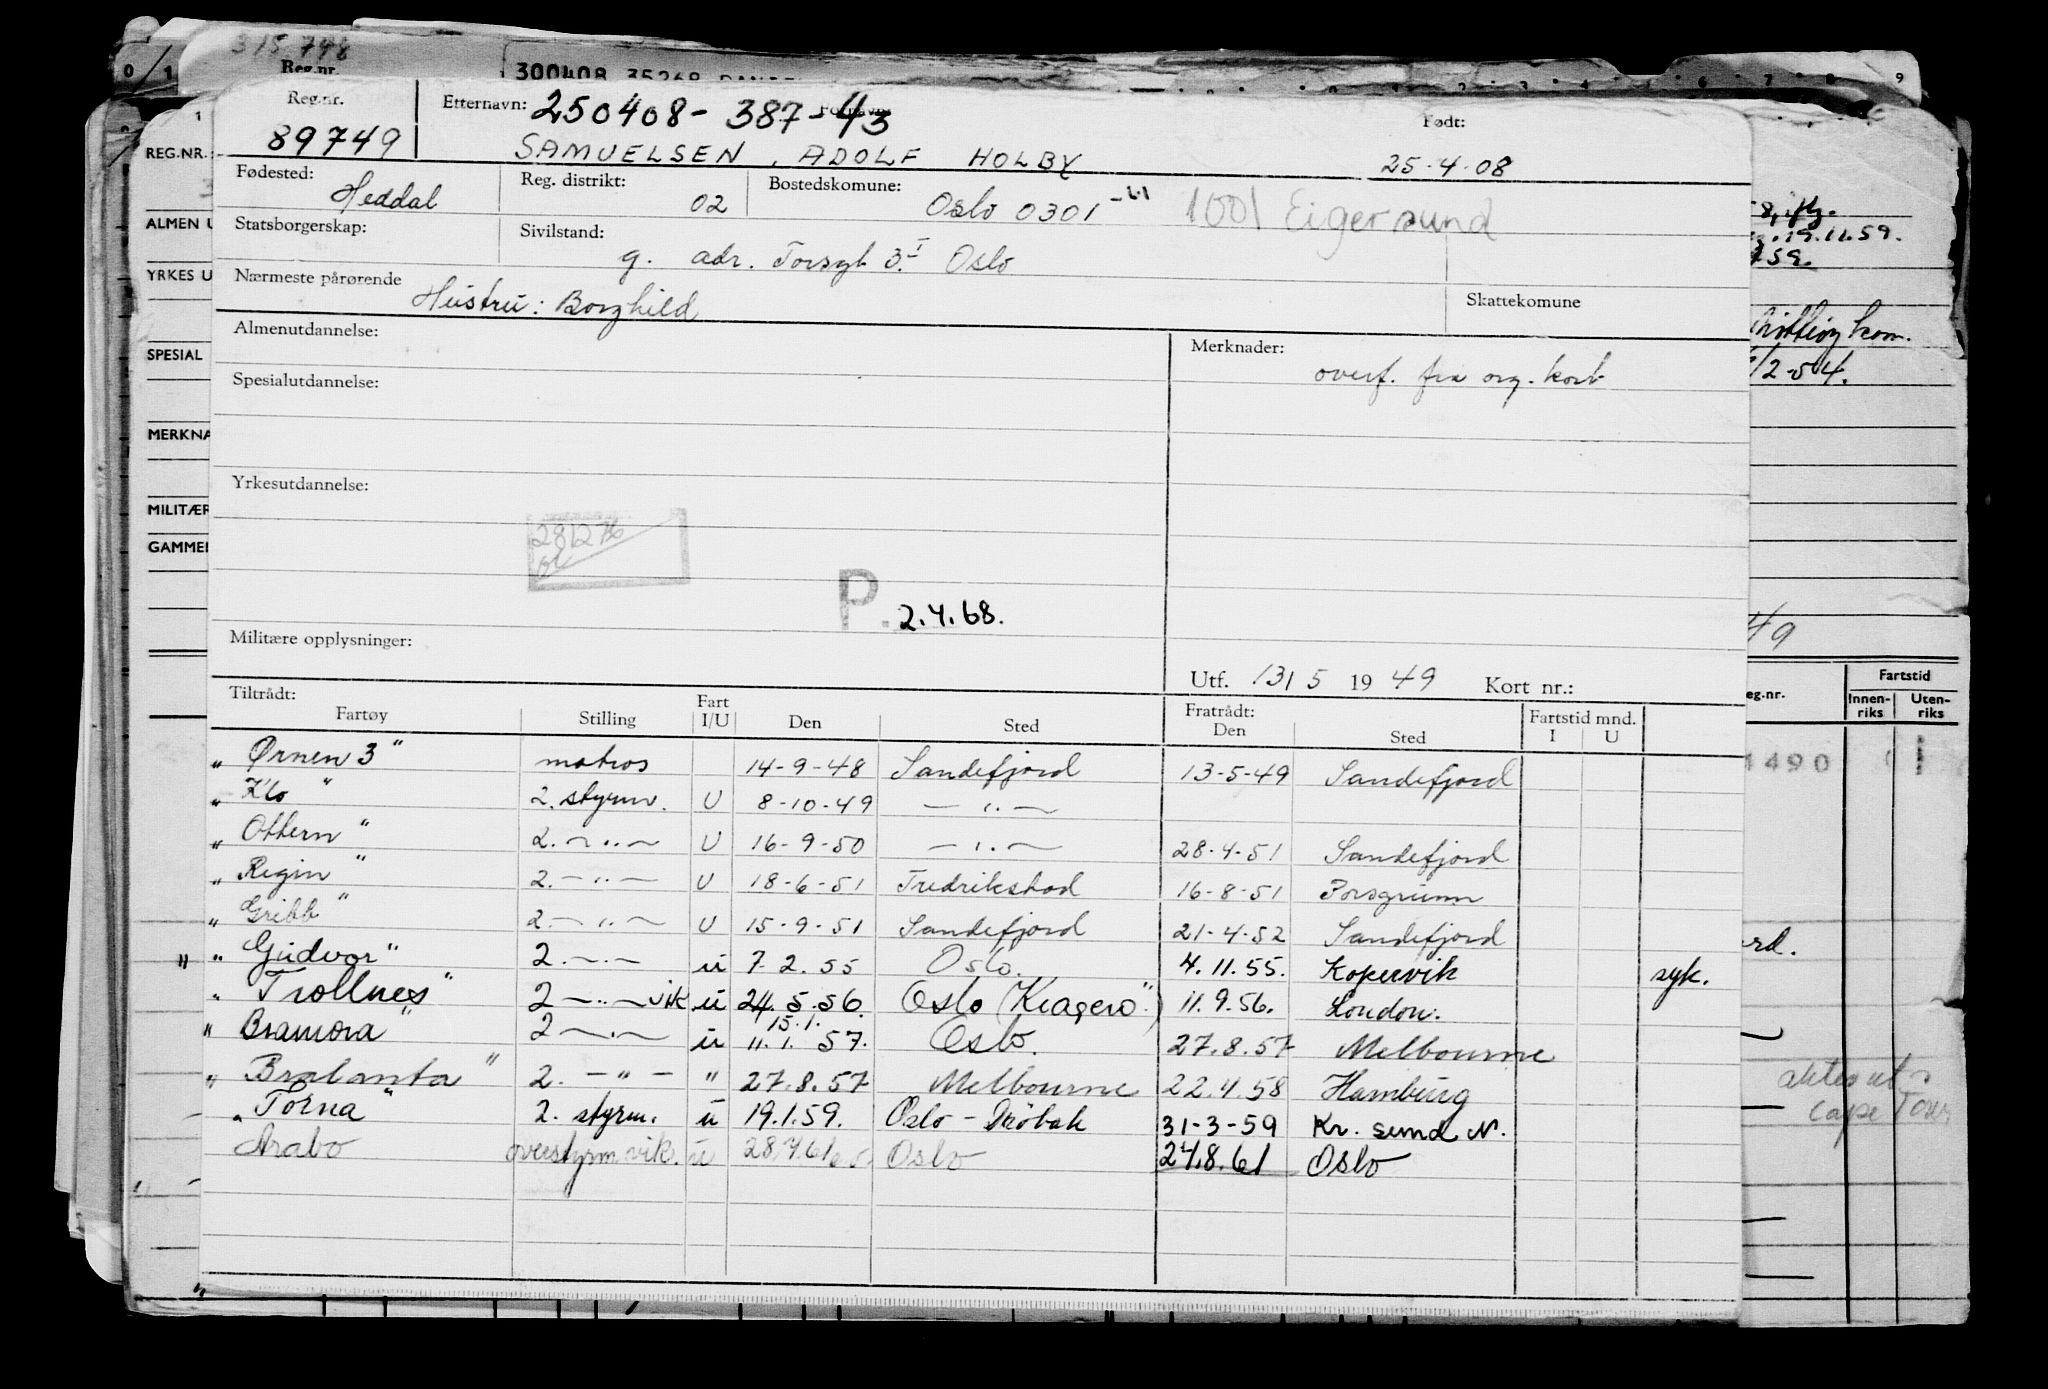 315748
Reg.nr.
300408 35269
Reg.nr. Etternavn: 250408-387-43 Født:
89749 SAMUELSEN, ADOLF HOLBY 25-4-08
Fødested: Heddal Reg. distrikt: 02 Bostedskomune: Oslo 0301 -61 1001 Eigersund
Statsborgerskap: Sivilstand: g. adr. Torsgt 3 I Oslo
Nærmeste pårørende Hustru: Borghild Skattekomune
Almenutdannelse: Merknader: overf. fra org. kort
Spesialutdannelse:
Yrkesutdannelse:
281276
P. 2.4.68.
Militære opplysninger:
Utf. 13/5 1949 Kort nr.:
Tiltrådt: Fratrådt:
Fartøy Stilling Fart I/U Den Sted Den Sted Fartstid mnd. I U
„ Ørnen 3 " matros 14-9-48 Sandefjord 13-5-49 Sandefjord
„ Klo " 2. styrm. U 8-10-49 — „ —
„ Ottern " 2. — „ — U 16-9-50 — „ — 28-4-51 Sandefjord
„ Regin " 2. — „ — U 18-6-51 Fredrikstad 16-8-51 Porsgrunn
„ Gribb " 2. — „ — U 15-9-51 Sandefjord 21-4-52 Sandefjord
„ „ Gudvor " 2. — „ — u 7.2.55 Oslo. 4.11.55. Kopervik syk.
„ Trollnes " 2 — „ — vik u 24.5.56. Oslo (Kragerø") 11.9.56. London.
15.1.
„ Bramora " 2 — „ — u 11.1.57. Oslo. 27.8.57 Melbourne
„ Bralanta " 2. — " — " 27.8.57 Melbourne 22.4.58 Hamburg
„ Torna " 2. styrm. u 19.1.59. Oslo - Drøbak 31-3-59 Kr. sund N.
Arabo overstyrm vik. u 28/4.61 Oslo 24.8.61 Oslo
REG.NR.
ALMEN U
YRKES U
SPESIAL
MERKNA
MILITÆR
GAMMEL
19.11.59.
/2-54.
49
eg.nr. Fartstid
Innen-riks Uten-riks
1490
rd.
Cape Town